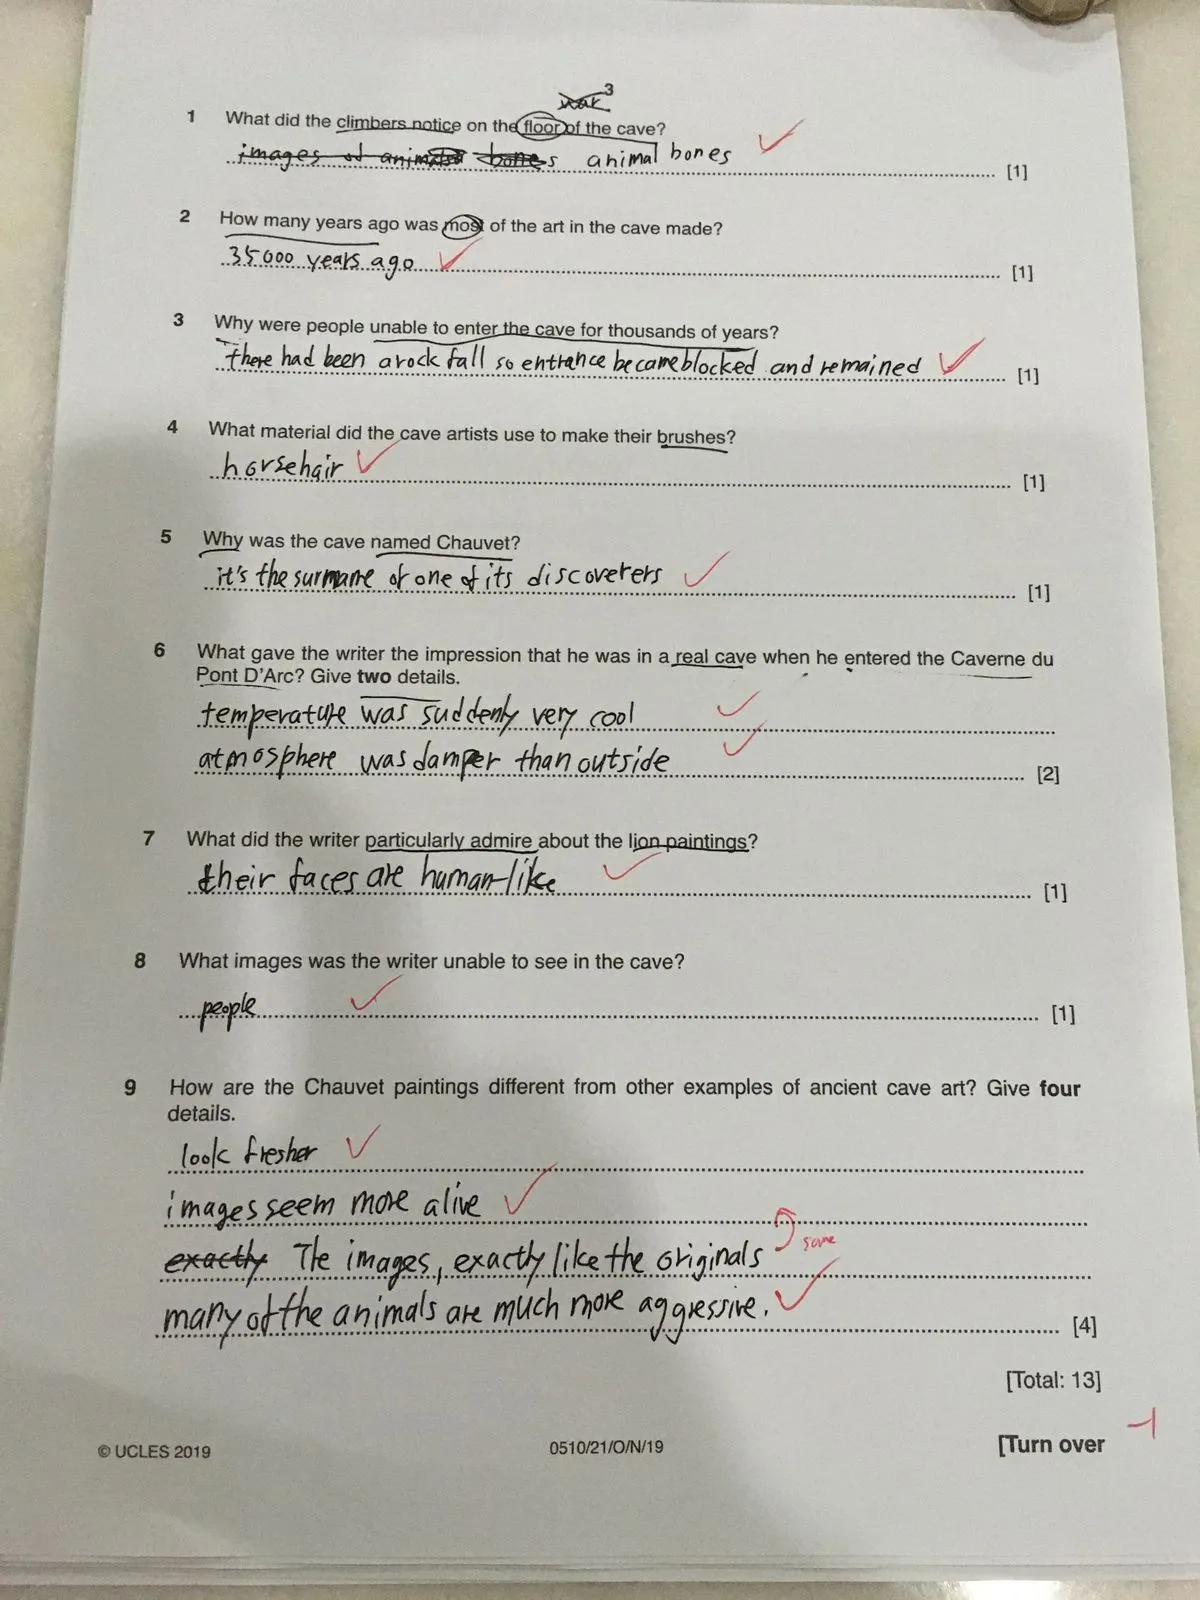 3
1 What did the climbers notice on the floor of the cave?
images of animal bones animal bones
[1]
2 How many years ago was most of the art in the cave made?
35000 years ago
[1]
3 Why were people unable to enter the cave for thousands of years?
there had been a rock fall so entrance became blocked and remained
[1]
4 What material did the cave artists use to make their brushes?
horsehair
[1]
5 Why was the cave named Chauvet?
it's the surname of one of its discoverers
[1]
6 What gave the writer the impression that he was in a real cave when he entered the Caverne du
Pont D'Arc? Give two details.
temperature was suddenly very cool
atmosphere was damper than outside
[2]
7 What did the writer particularly admire about the lion paintings?
their faces are human-like
[1]
8 What images was the writer unable to see in the cave?
people
[1]
9 How are the Chauvet paintings different from other examples of ancient cave art? Give four
details.
look fresher
images seem more alive
exactly The images, exactly like the originals same
many of the animals are much more aggressive.
[4]
[Total: 13]
-1
© UCLES 2019 0510/21/O/N/19 [Turn over